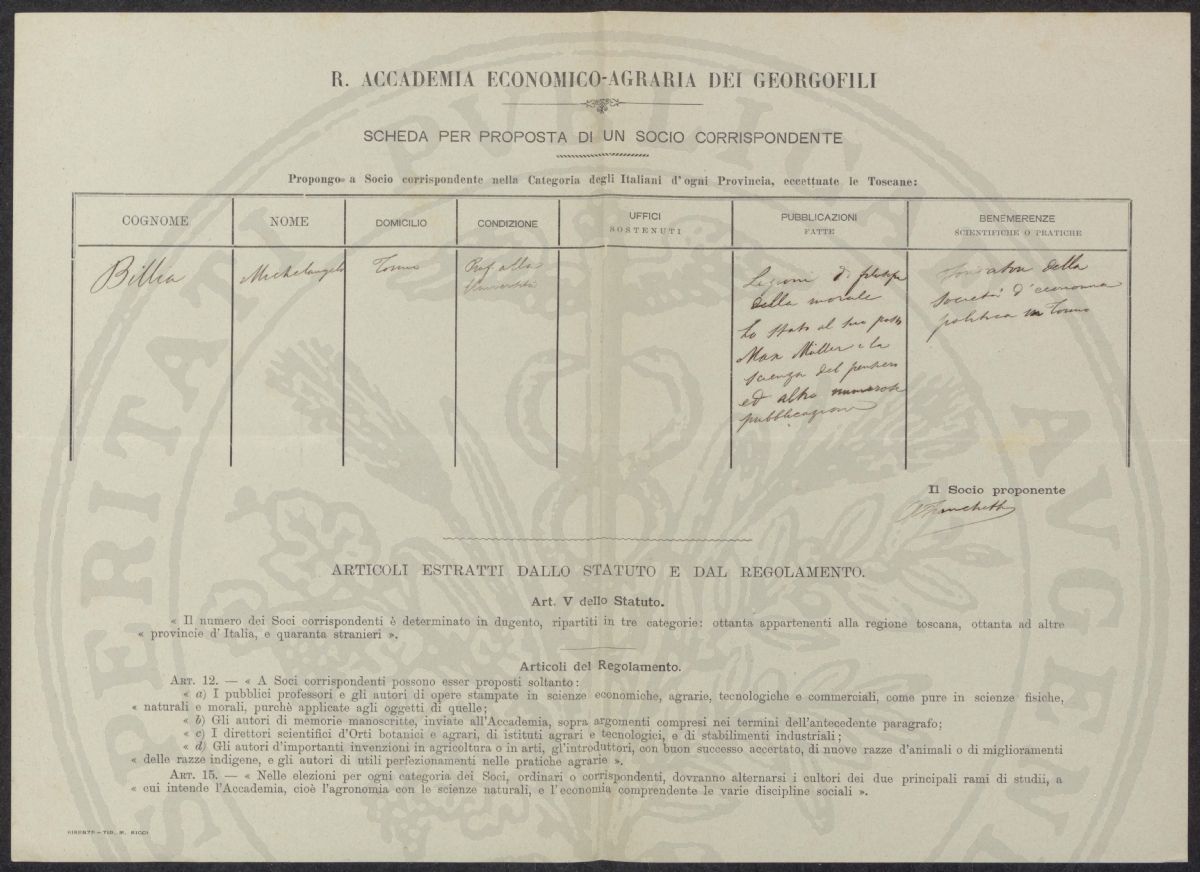 R. ACCADEMIA ECONOMICO-AGRARIA DEI GEORGOFILI
SCHEDA PER PROPOSTA DI UN SOCIO CORRISPONDENTE
Propongo a Socio corrispondente nella Categoria degli Italiani d'ogni Provincia, eccettuate le Toscane:
COGNOME
NOME
DOMICILIO
CONDIZIONE
UFFICI
SOSTENUTI
PUBBLICAZIONI
FATTE
BENEMERENZE
SCIENTIFICHE O PRATICHE
Billia
Michelangelo
Torino
Prof. alla
Università
Lezioni di filosofia
della morale
Lo stato al suo posto
Max Müller e la
scienza del pensiero
ed altre numerose
pubblicazioni
Fondatore della
Società d'economia
politica in Torino
Il Socio proponente
Franchetti
ARTICOLI ESTRATTI DALLO STATUTO E DAL REGOLAMENTO.
Art. V dello Statuto.
« Il numero dei Soci corrispondenti è determinato in dugento, ripartiti in tre categorie: ottanta appartenenti alla regione toscana, ottanta ad altre
« provincie d'Italia, e quaranta stranieri ».
Articoli del Regolamento.
ART. 12. — « A Soci corrispondenti possono esser proposti soltanto:
« a) I pubblici professori e gli autori di opere stampate in scienze economiche, agrarie, tecnologiche e commerciali, come pure in scienze fisiche,
« naturali e morali, purchè applicate agli oggetti di quelle;
« b) Gli autori di memorie manoscritte, inviate all'Accademia, sopra argomenti compresi nei termini dell'antecedente paragrafo;
« c) I direttori scientifici d'Orti botanici e agrari, di istituti agrari e tecnologici, e di stabilimenti industriali;
« d) Gli autori d'importanti invenzioni in agricoltura o in arti, gl'introduttori, con buon successo accertato, di nuove razze d'animali o di miglioramenti
« delle razze indigene, e gli autori di utili perfezionamenti nelle pratiche agrarie ».
ART. 15. — « Nelle elezioni per ogni categoria dei Soci, ordinari o corrispondenti, dovranno alternarsi i cultori dei due principali rami di studii, a
« cui intende l'Accademia, cioè l'agronomia con le scienze naturali, e l'economia comprendente le varie discipline sociali ».
FIRENZE - TIP. M. RICCI